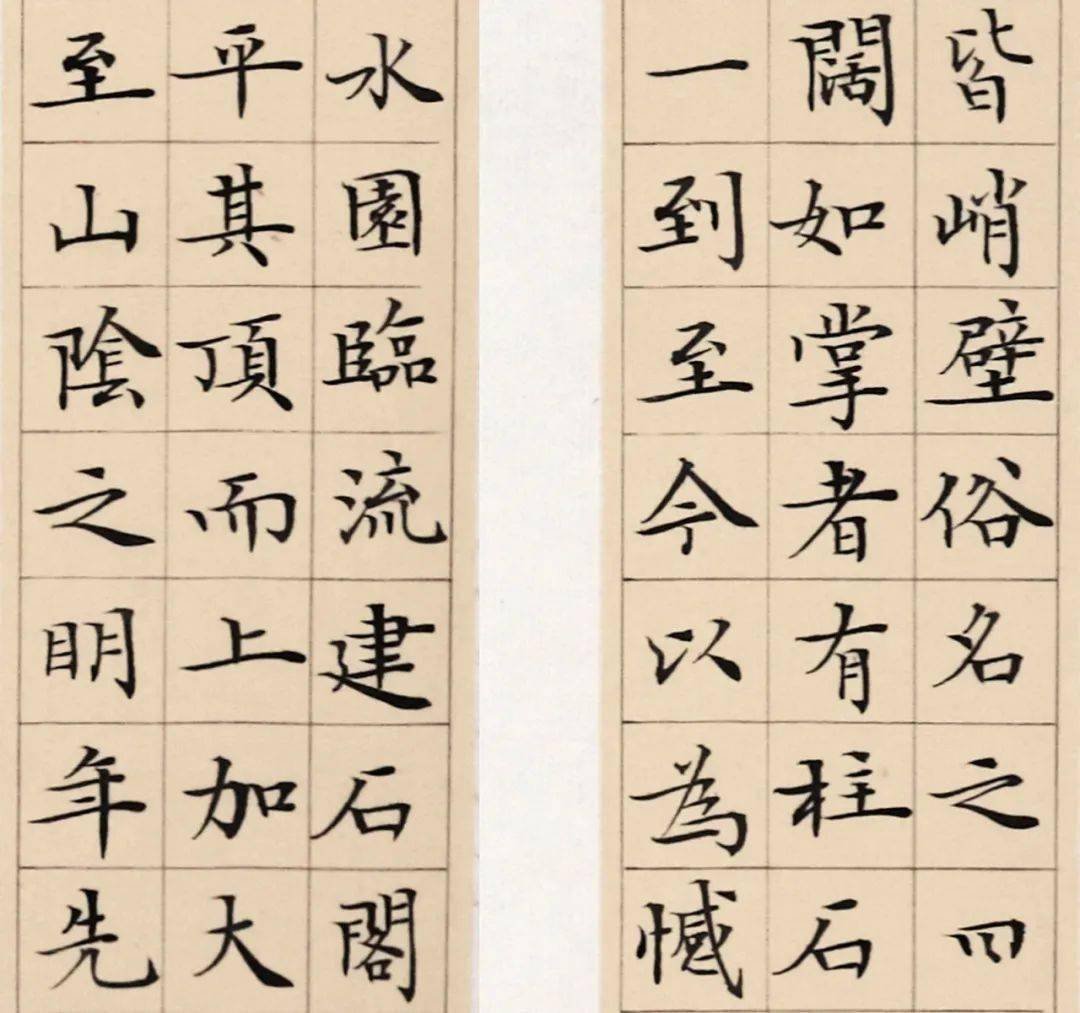 皆峭壁俗名之四
闊如掌者有柱石
一到至今以為憾
水園臨流建石閣
平其頂而上加大
至山陰之明年先